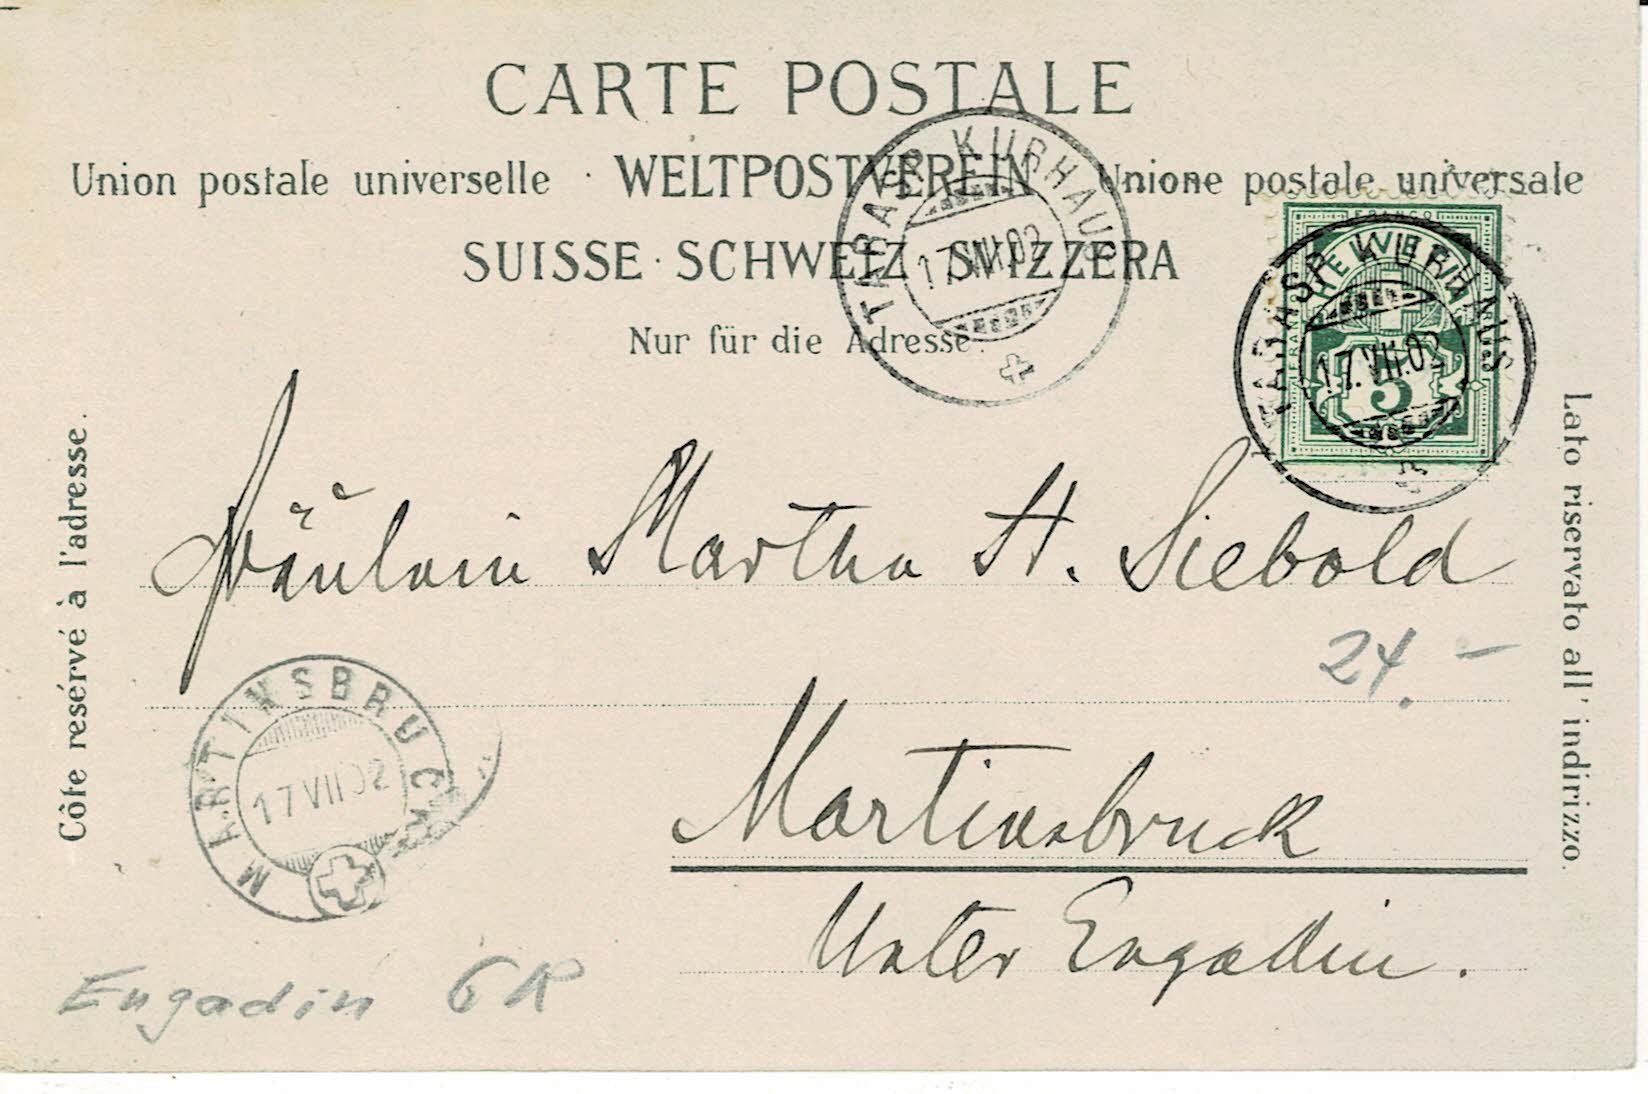 CARTE POSTALE
Union postale universelle · WELTPOSTVEREIN · Unione postale universale
SUISSE · SCHWEIZ · SVIZZERA
Nur für die Adresse.
TARASP KURHAUS
17.VII.02
FRANCO
HELVETIA
FRANCO
5
TARASP KURHAUS
17.VII.02
Côte resérvé à l'adresse.
Lato riservato all' indirizzo.
Fräulein Martha H. Siebold
24.–
MARTINSBRUCK
17 VII 02
Martinsbruck
Unter Engadin.
Engadin GR